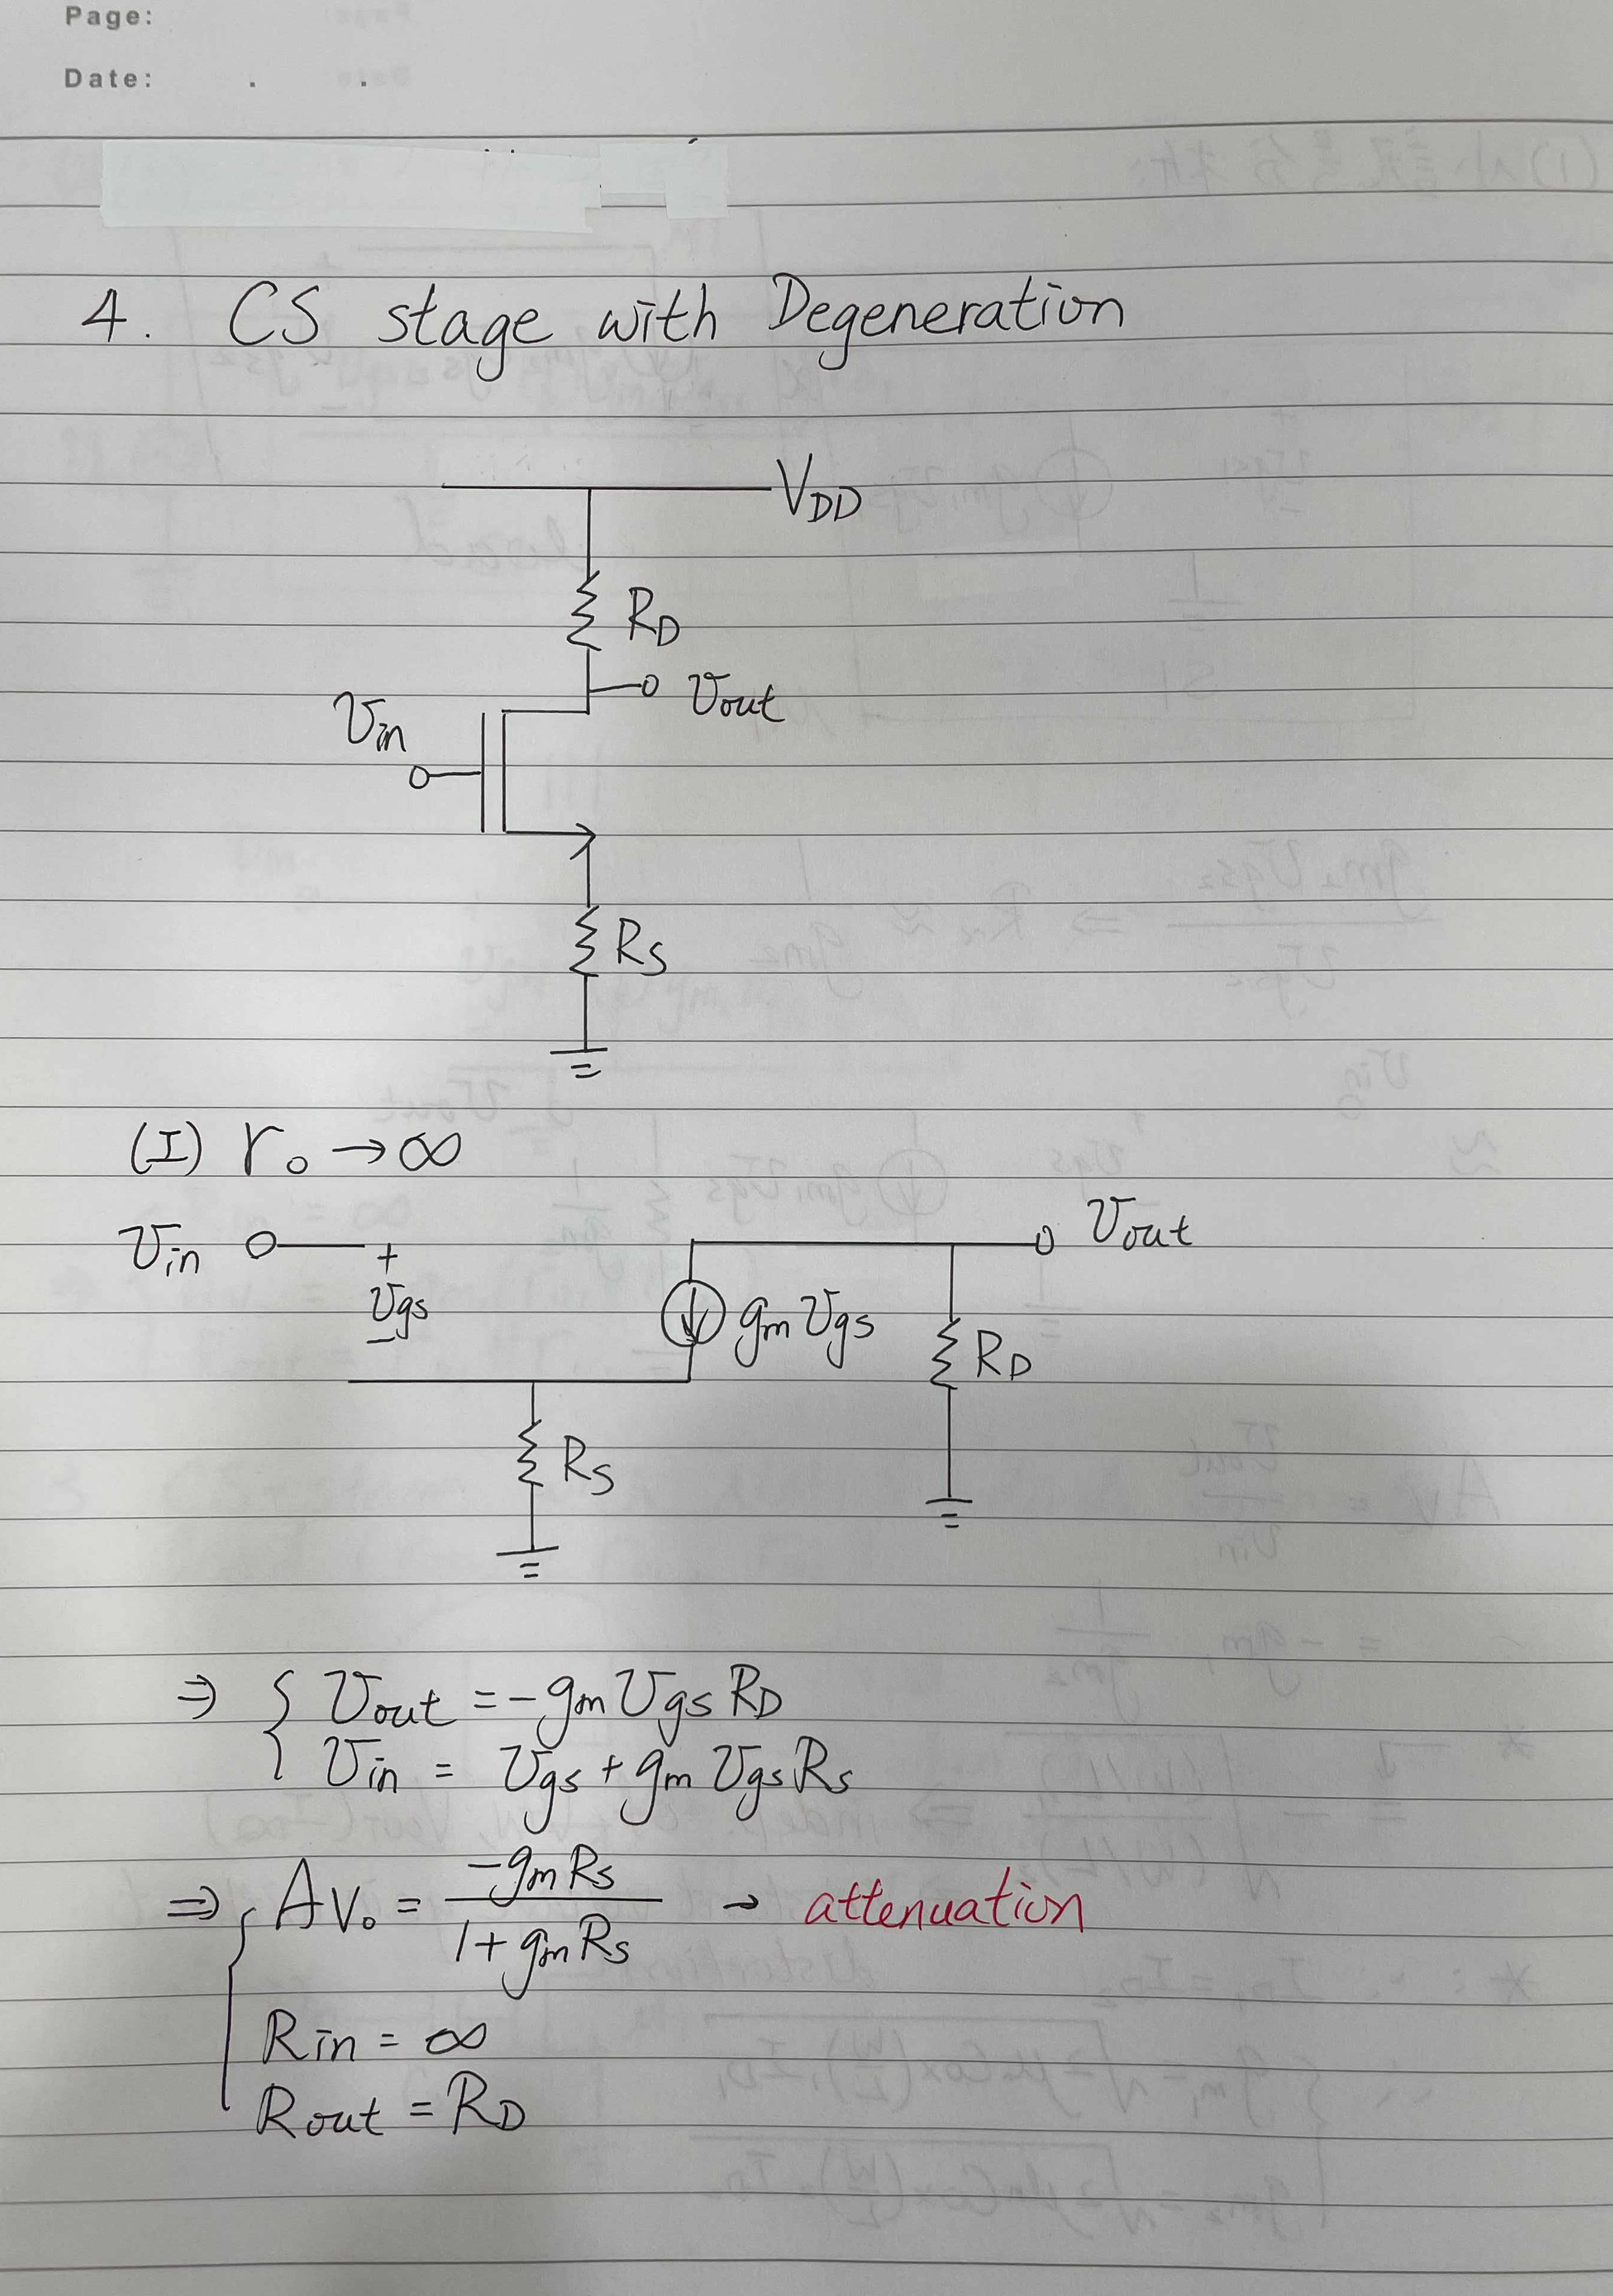 Page:
Date: . .
4. CS stage with Degeneration
VDD
RD
Vout
Vin
RS
(I) ro → ∞
Vin + Vout
Vgs
- gm Vgs RD
RS
⇒ { Vout = -gm Vgs RD
Vin = Vgs + gm Vgs Rs
⇒ { Avo = -gm Rs / 1 + gm Rs → attenuation
Rin = ∞
Rout = RD